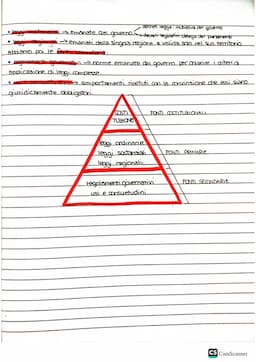 → emanate dal governo
decreti legge: iniziativa del governo
decreti legislativi: delega del parlamento
→ emanati dalla singola regione e valida solo nel suo territorio
→ norme emanate dal governo per chiarire i criteri di
applicazione di leggi complesse
→ comportamenti ripetuti con la convinzione che essi siano
giuridicamente obbligatori
COSTI
TUZIONE
FONTI COSTITUZIONALI
leggi ordinarie
leggi sostanziali
leggi regionali
FONTI PRIMARIE
regolamenti governativi
usi e consuetudini
FONTI SECONDARIE
CS CamScanner